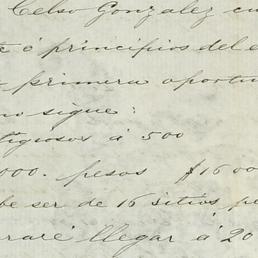 Celso Gonzalez cu
te ó principios del e
primera oportu
mo sigue:
tigiosos á 500
000. pesos $16 00
be ser de 16 sitios, pe
raré llegar á 20